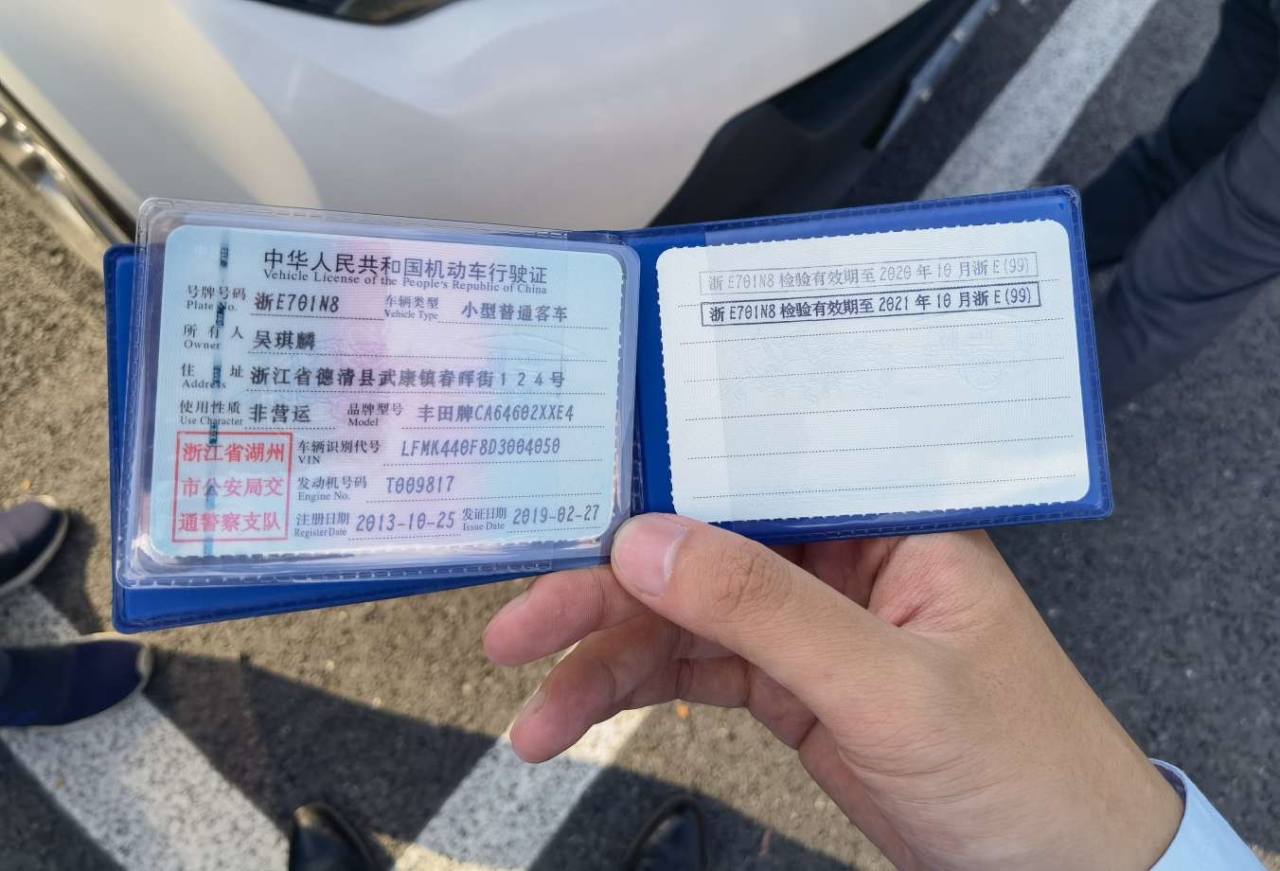 中华人民共和国机动车行驶证
Vehicle License of the People's Republic of China
号牌号码 浙E701N8 车辆类型 小型普通客车
Plate No. Vehicle Type
所有人 吴琪麟
Owner
住址 浙江省德清县武康镇春晖街124号
Address
使用性质 非营运 品牌型号 丰田牌CA64602XXE4
Use Character Model
浙江省湖州
市公安局交
通警察支队
车辆识别代号 LFMK440F8D3004050
VIN
发动机号码 T009817
Engine No.
注册日期 2013-10-25 发证日期 2019-02-27
Register Date Issue Date
浙E701N8检验有效期至2020年10月浙E(99)
浙E701N8检验有效期至2021年10月浙E(99)